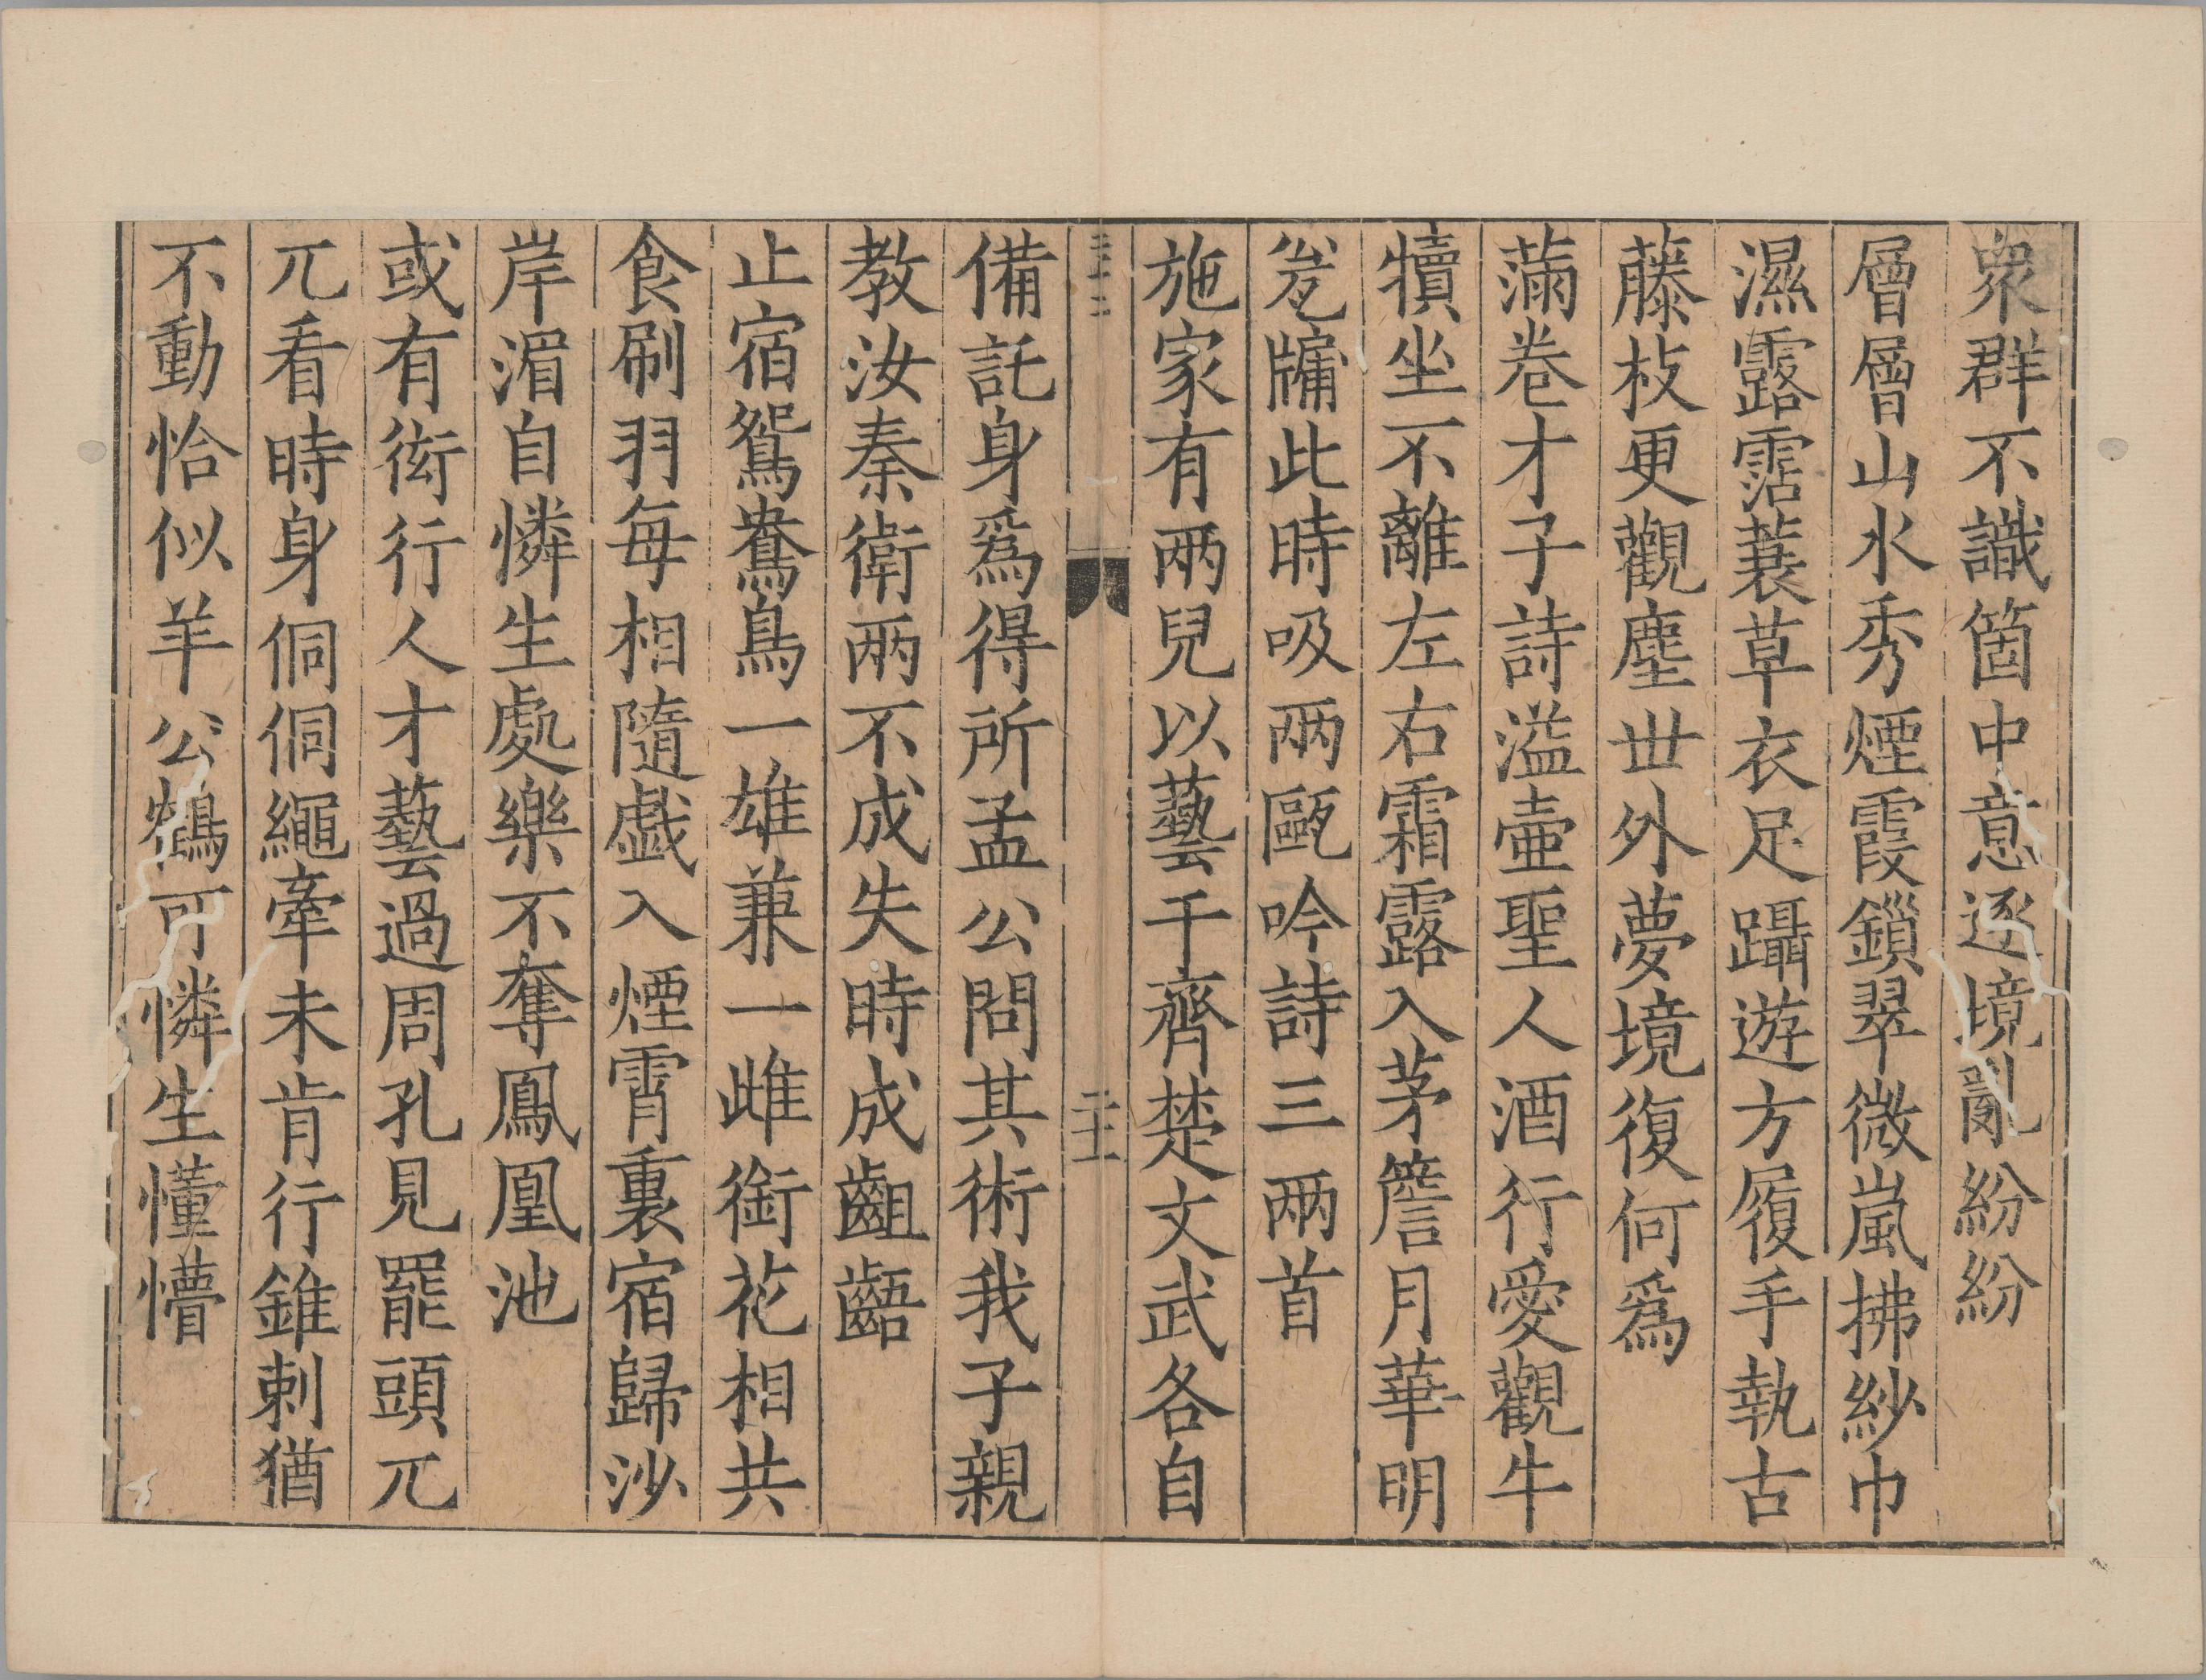 衆群不識箇中意逐境亂紛紛
層層山水秀煙霞鎖翠微嵐拂紗巾
濕露霑蓑草衣足躡遊方履手執古
藤枝更觀塵世外夢境復何爲
滿卷才子詩溢壷聖人酒行愛觀牛
犢坐不離左右霜露入茅簷月華明
瓮牖此時吸两甌吟詩三两首
施家有两兒以藝干齊楚文武各自
備託身爲得所孟公問其術我子親
教汝秦衛两不成失時成齟齬
止宿鴛鴦鳥一雄兼一雌銜花相共
食刷羽每相隨戯入煙霄裏宿歸沙
岸湄自憐生處樂不奪鳳凰池
或有衒行人才藝過周孔見罷頭兀
兀看時身侗侗繩牽未肯行錐刺猶
不動恰似羊公鶴可憐生懂懵